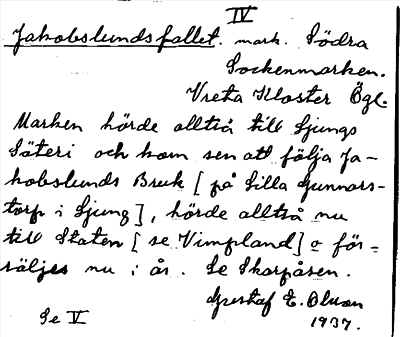 IV
Jakobslundsfallet. mark. Södra
Sockenmarken.
Vreta Kloster Ögl.
Marken hörde alltså till Ljungs
Säteri och kom sen att följa Ja-
kobslunds Bruk [på Lilla Gunnors-
torp i Ljung], hörde alltså nu
till Staten [se Vimpland] o för-
säljes nu i år. Se Skarpåsen.
Gustaf E. Olsson
1937.
Se V